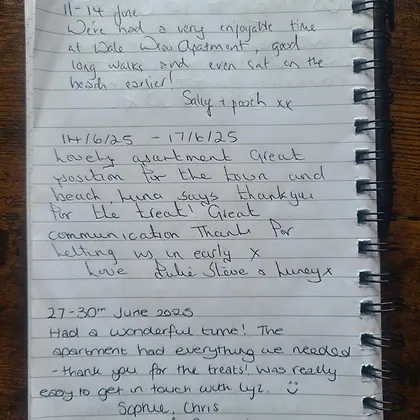 11-14 June
We've had a very enjoyable time
at Wale View Apartment, good
long walks and even sat on the
beach earlier!
Sally + pooch xx
14/6/25 - 17/6/25
Lovely apartment Great
position for the town and
beach, Luna says thankyou
for the treat! Great
communication Thanks for
letting us in early x
Love Julie Steve & Luney x
27-30th June 2025
Had a wonderful time! The
apartment had everything we needed
- thank you for the treats! Was really
easy to get in touch with Lyz. :)
Sophie, Chris